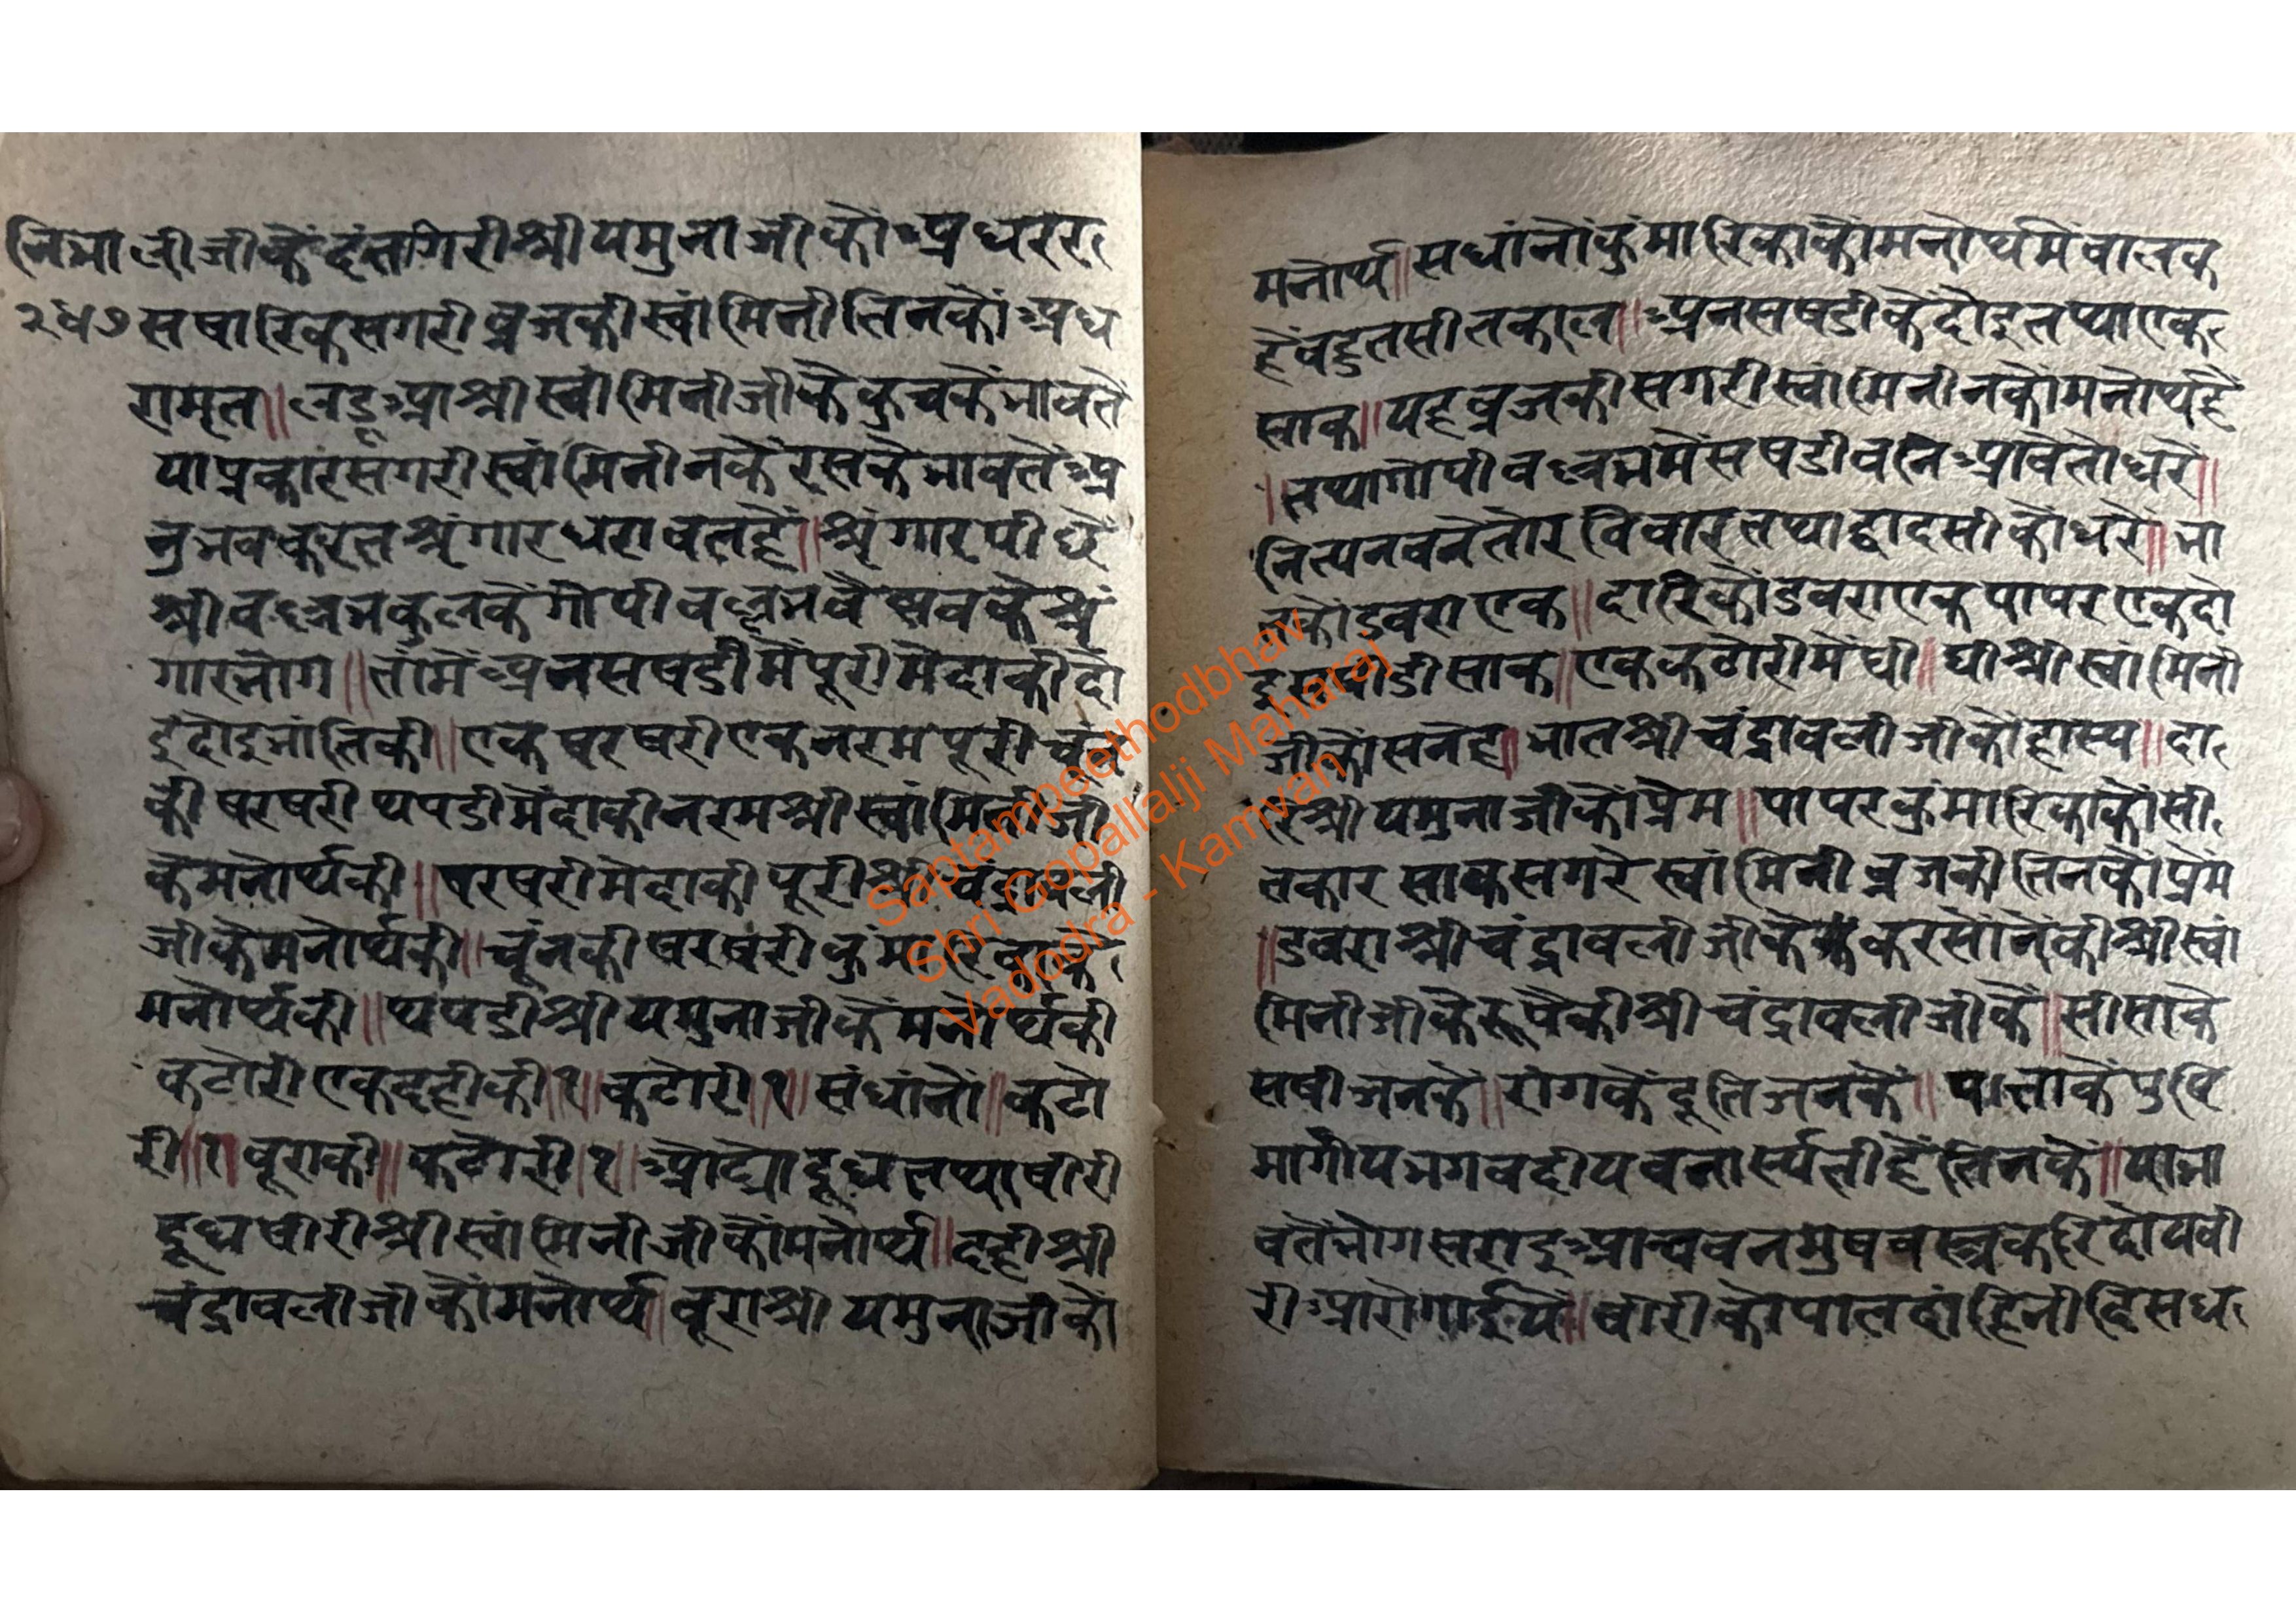 जीजीकेंदंतगिरीश्रीयमुनाजीकोअधरर
२५७ सषारिकसगरीव्रजकीस्वांमिनीतिनकोंअध
रामृत॥लडूआश्रीस्वांमिनीजीकेकुचकेभावतें
याप्रकारसगरीस्वांमिनीनकेंरसकेभावतेंअ
नुभवकरतश्रृंगारधरावतहें॥श्रृंगारपीछें
श्रीवल्लभकुलकेंगोपीवल्लभवैष्णवकेश्रृं
गारभोग॥तांमेंअनसषडीमेंपूरीमेदाकीदो
इदोइभांतिकी॥एकषरषरीएकनरमपूरीचूंन
कीषरषरीथपडीमेंदाकीनरमश्रीस्वांमिनीजी
केमनोर्थकी॥षरषरीमेदाकीपूरीश्रीचंद्रावली
जीकेमनोर्थकी॥चूंनकीषरषरीकुंमारिकाके
मनोर्थकी॥थपडीश्रीयमुनाजीकेंमनोर्थकी
कटोरीएकदहीकी॥१॥कटोरी॥१॥संधांनों॥कटो
री॥१॥बूराकी॥कटोरी॥१॥ओट्योदूधतथाषीरी
दूधषीरीश्रीस्वांमिनीजीकोंमनोर्थ॥दहीश्री
चंद्रावलीजीकोंमनोर्थ॥बूराश्रीयमुनाजीको
मनोर्थ॥सधांनोंकुंमारिकाकोंमनोर्थमेंवालक
हेंवहुतसीतकाल॥अनसषडीकेंदोइतथाएक
साक॥यहव्रजकीसगरीस्वांमिनीनकोंमनोर्थहे
॥तथागोपीवल्लभमेंसषडीवनिआवेतोधरें॥
नित्यनवनेतोरविवारतथाद्वादसीकोंधरें॥भा
तकोंडवराएक॥दारिकोंडवराएकपापरएकदो
इसषडीसाक॥एककटोरीमेंघी॥घीश्रीस्वांमिनी
जीकोंसनेह॥भातश्रीचंद्रावलीजीकोंहास्य॥दा
रिश्रीयमुनाजीकोंप्रेम॥पापरकुंमारिकाकोंसी
तकारसाकसगरेस्वांमिनीव्रजकीतिनकोंप्रेम
॥डवराश्रीचंद्रावलीजीकेकरसोंनेंकीश्रीस्वां
मिनीजीकेंरूपेकीश्रीचंद्रावलीजीकें॥सीसाके
सषीजनकें॥रांगकेंदूतिजनकें॥पातलाकेंपुष्टि
मार्गीयभगवदीयवनास्पतीहेंतिनकें॥याभा
वतेंभोगसराइआचवनमुषवस्त्रकरिदोयवी
रीआरोगाईये॥वीरीकोपातदांहिनीदिसध